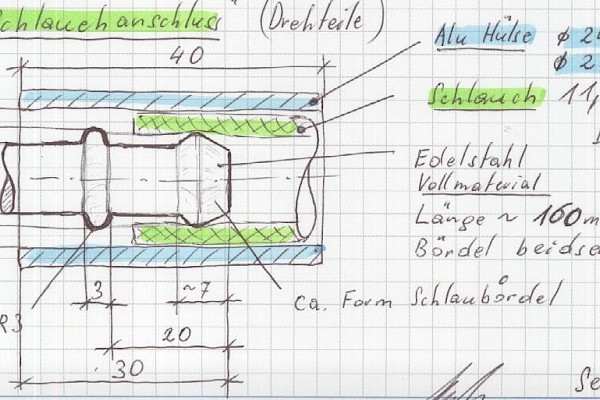 Schlauchanschluss" (Drehteile)
40
Alu Hülse ϕ 24
ϕ 2
Schlauch 11,
Edelstahl
Vollmaterial
Länge ~ 160m
Bördel beidse
ca. Form Schlaubördel
3
~7
R3
20
30
Se